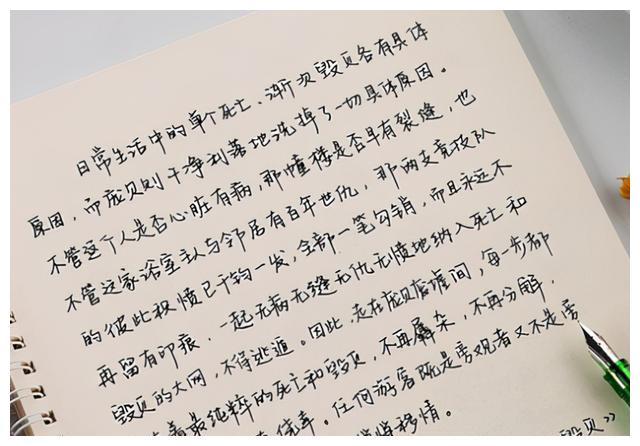 日常生活中的单个死亡、渐次毁灭各有具体
原因，而庞贝则干净利落地洗掉了一切具体原因。
不管这个人是否心脏有病，那幢楼是否早有裂缝，也
不管这家浴室主人与邻居有百年世仇，那两支竞技队
的彼此积愤已千钧一发，全部一笔勾销，而且永远不
再留有印痕，一起无病无缝无仇无愤地纳入死亡和
毁灭的大网，不得逃遁。因此，走在庞贝废墟间，每一步都
着最纯粹的死亡和毁灭，不再羼杂，不再分解，
侥幸。任何游客既是旁观者又不是旁
悄移情。
毁灭”